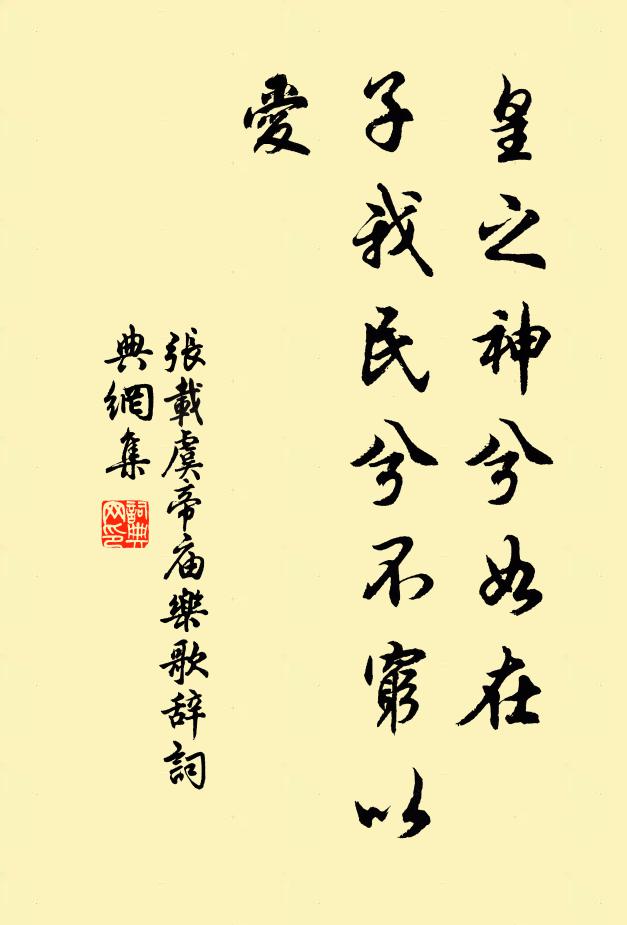 皇之神兮如在
子我民兮不窮以
愛
張載虞帝庙樂歌辞詞
典網集
詞典
网印